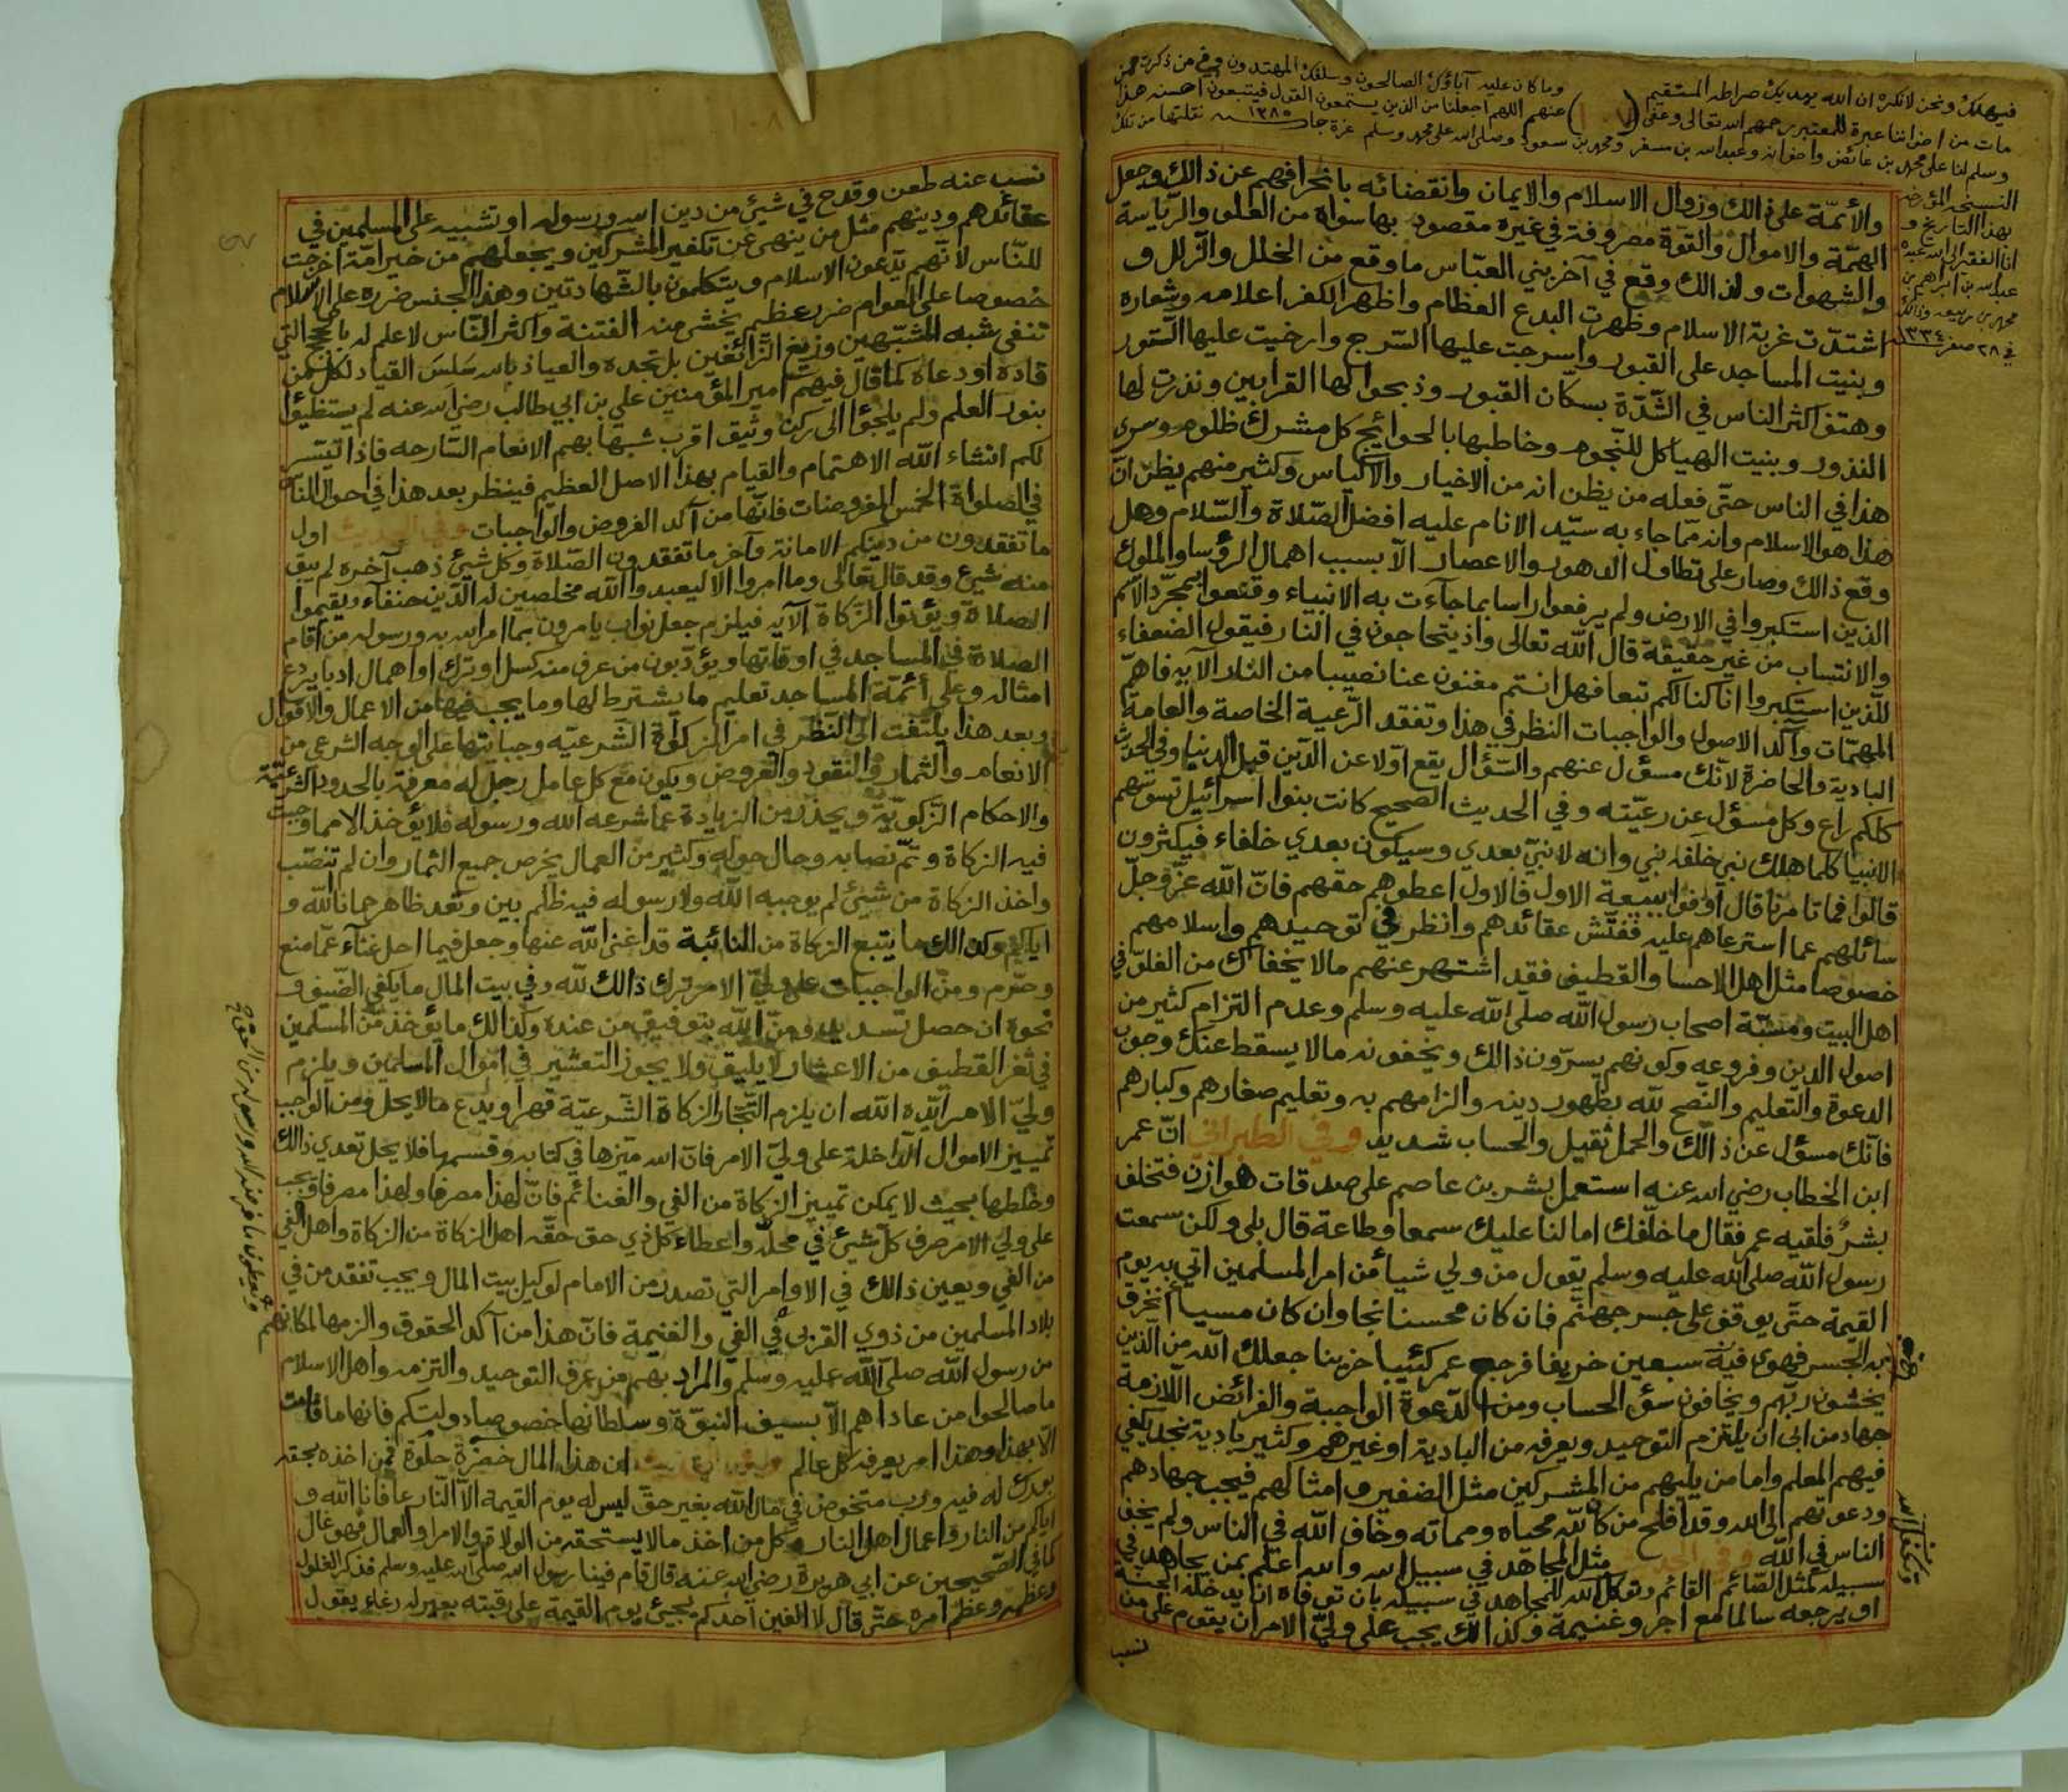 فيهديك ونحن لا نكره ان الله يهديك صراطه المستقيم
وما كان عليه آباؤك الصالحون وسلفك المهتدون وفي من ذكرت ممن
مات من اخواننا عبرة للمعتبر رحمهم الله تعالى وعفى
عنهم اللهم اجعلنا من الذين يستمعون القول فيتبعون احسنه هذا
وسلم لنا على محمد بن عائض واخوانه وعبد الله بن مسفر ومحمد بن سعود وصلى الله على محمد وسلم غرة جا سنه ١٢٨٥ نقلتها من تلك
النسخه المؤرخه
بهذا التاريخ و
انا الفقير الى الله عبده
عبد الله بن ابراهيم بن
محمد بن ربيعه وذالك
في ٢٨ صفر ١٣٣٤
والأئمّة على ذالك وزوال الاسلام والايمان وانقضائه بانحرافهم عن ذالك وجعل
الهمّة والاموال والقوة مصروفة في غيره مقصود بها سواه من العلو والرياسة
والشهوات ولذالك وقع في آخر بني العبّاس ما وقع من الخلل والزلل و
اشتدّت غربة الاسلام وظهرت البدع العظام واظهر الكفر اعلامه وشعاره
وبنيت المساجد على القبور واسرجت عليها السّرج وارخيت عليها الستور
وهتف اكثر الناس في الشّدّة بسكان القبور وذبحوا لها القرابين ونذرت لها
النذور وبنيت الهياكل للنّجوم وخاطبها بالحوائج كل مشرك ظلوم وسرى
هذا في الناس حتّى فعله من يظن انه من الاخيار والاكياس وكثير منهم يظن انّ
هذا هو الاسلام وانه ممّا جاء به سيّد الانام عليه افضل الصّلاة والسّلام وهل
وقع ذالك وصار على تطاول الدهور والاعصار الاّ بسبب اهمال الرؤسا والملوك
الذين استكبروا في الارض ولم يرفعوا راسا بما جآءت به الانبياء وقنعوا بمجرّد الاسم
والانتساب من غير حقيقة قال الله تعالى واذ يتحاجون في النار فيقول الضعفاء
للّذين استكبروا انا كنا لكم تبعا فهل انتم مغنون عنا نصيبا من النار الآيه فاهمّ
المهمّات وآكد الاصول والواجبات النظر في هذا وتفقد الرّعية الخاصة والعامة
البادية والحاضرة لانّك مسؤل عنهم والسّؤال يقع اوّلا عن الدّين قبل الدنيا وفي الحديث
كلكم راع وكل مسؤل عن رعيّته وفي الحديث الصحيح كانت بنوا اسرائيل تسوسهم
الانبيا كلما هلك نبي خلفه نبي وانه لا نبيّ بعدي وسيكون بعدي خلفاء فيكثرون
قالوا فما تامرنا قال اوفوا ببيعة الاول فالاول اعطوهم حقهم فانّ الله عزّ وجلّ
سائلهم عما استرعاهم عليه ففتّش عقائدهم وانظر في توحيدهم واسلامهم
خصوصا مثل اهل الاحسا والقطيف فقد اشتهر عنهم مالا يخفاك من الغلوّ في
اهل البيت ومسبّة اصحاب رسول الله صلى الله عليه وسلم وعدم التزام كثير من
اصول الدين وفروعه وكونهم يسرّون ذالك ويخفونه مالا يسقط عنك وجوب
الدعوة والتعليم والنّصح لله بظهور دينه والزامهم به وتعليم صغارهم وكبارهم
فانّك مسؤل عن ذالك والحمل ثقيل والحساب شديد وفي الطبراني انّ عمر
ابن الخطاب رضي الله عنه استعمل بشر بن عاصم على صدقات هوازن فتخلف
بشرٌ فلقيه عمر فقال ما خلّفك امالنا عليك سمعا وطاعة قال بلى ولكن سمعت
رسول الله صلى الله عليه وسلم يقول من ولي شيأ من امر المسلمين اتي به يوم
القيمة حتّى يوقف على جسر جهنّم فان كان محسنا نجا وان كان مسيأ انخرق
به الجسر فهوى فيه سبعين خريفا فرجع عمر كئيبا حزينا جعلك الله من الذين
يخشون ربّهم ويخافون سؤ الحساب ومن الدّعوة الواجبة والفرائض اللازمة
جهاد من ابى ان يلتزم التوحيد ويعرفه من البادية او غيرهم وكثير بادية نجد يكفي
فيهم المعلم واما من يليهم من المشركين مثل الضفير وامثالهم فيجب جهادهم
ودعوتهم الى الله وقد افلح من كان لله محياه ومماته وخاف الله في الناس ولم يخف
الناس في الله وفي الحديث مثل المجاهد في سبيل الله والله اعلم بمن يجاهد في
سبيله كمثل الصّائم القائم وتوكل الله للمجاهد في سبيله بان توفاه ان يدخله الجنة
او يرجعه سالما مع اجر وغنيمة وكذالك يجب على وليّ الامر ان يقوم على من
نسب
نسب عنه طعن وقدح في شيئ من دين الله ورسوله او تشبيه على المسلمين في
عقائدهم ودينهم مثل من ينهى عن تكفير المشركين ويجعلهم من خير امّة اخرجت
للنّاس لانّهم يدّعون الاسلام ويتكلمون بالشّهادتين وهذا الجنس ضرره على الاسلام
خصوصا على العوام ضرر عظيم يخشى منه الفتنة واكثر النّاس لا علم له بالحجج التي
تنفي شبه المشبّهين وزيغ الزّائغين بل تجده والعياذ بالله سَلسَ القياد لكل من
قاده او دعاه كما قال فيهم امير المؤمنين علي بن ابي طالب رضي الله عنه لم يستضيؤا
بنور العلم ولم يلجؤا الى ركن وثيق اقرب شبها بهم الانعام السّارحه فاذا تيسّر
لكم انشاء الله الاهتمام والقيام بهذا الاصل العظيم فينظر بعد هذا في احوال الناس
في الصلواة الخمس المفروضات فانّها من آكد الفروض والواجبات وفي الحديث اول
ما تفقدون من دينكم الامانة وآخر ما تفقدون الصّلاة وكل شيئ ذهب آخره لم يبق
منه شيئ وقد قال تعالى وما امروا الا ليعبدوا الله مخلصين له الدّين حنفاء ويقيموا
الصلاة ويؤتوا الزّكاة الآيه فيلزم جعل نواب يامرون بما امر الله به ورسوله من اقام
الصلاة في المساجد في اوقاتها ويؤدّبون من عرف منه كسل او ترك او اهمال ادبا يردع
امثاله وعلى أئمّة المساجد تعليم ما يشترط لها وما يجب فيها من الاعمال والاقوال
وبعد هذا يلتفت الى النّظر في امر الزكواة الشّرعيّه وجبايتها على الوجه الشرعي من
الانعام والثمار والنقود والعروض ويكون مع كل عامل رجل له معرفة بالحدود الشرعيّة
والاحكام الزّكويّة ويحذر من الزيادة عما شرعه الله ورسوله فلا يؤخذ الا مما وجبت
فيه الزكاة وتمّ نصابه وحال حوله وكثير من العمال يخرص جميع الثمار وان لم تنصّب
واخذ الزكاة من شيئ لم يوجبه الله ولا رسوله فيه ظلم بين وتعد ظاهر حمانا الله و
اياكم وكذالك ما يتبع الزكاة من النائبة قد اغنى الله عنها وجعل فيما احل غنآء عمّا منع
وحرّم ومن الواجبات على وليّ الامر ترك ذالك لله وفي بيت المال ما يكفي الضّيف و
نحوه ان حصل تسديد ومنّ الله بتوفيق من عنده وكذالك ما يؤخذ من المسلمين
في ثغر القطيف من الاعشار لا يليق ولا يجوز التعشير في اموال المسلمين ويلزم
وليّ الامر ايّده الله ان يلزم التّجّار الزكاة الشّرعيّة قهرا ويدع مالا يحل ومن الواجب
تمييز الاموال الدّاخلة على وليّ الامر فانّ الله ميّزها في كتابه وقسمها فلا يحل تعدي ذالك
وخلطها بحيث لا يمكن تمييز الزكاة من الفي والغنائم فانّ لهذا مصرفا ولهذا مصرفا ويجب
على وليّ الامر صرف كل شيئ في محلّه واعطاء كل ذي حق حقّه اهل الزكاة من الزكاة واهل الفي
من الفي ويعين ذالك في الاوامر التي تصدر من الامام لوكيل بيت المال ويجب تفقد من في
بلاد المسلمين من ذوي القربى في الفي والغنيمة فانّ هذا من آكد الحقوق والزمها لمكانهم
من رسول الله صلى الله عليه وسلم والمراد بهم من عرف التوحيد والتزمه واهل الاسلام
ما صالحوا من عاداهم الاّ بسيف النبوّة وسلطانها خصوصا دولتكم فانها ما قامت
الاّ بهذا وهذا امر يعرفه كل عالم وفي الحديث ان هذا المال خضرة حلوة فمن اخذه بحقه
بورك له فيه وربّ متخوض في مال الله بغير حقّ ليس له يوم القيمة الاّ النّار عافانا الله و
اياكم من النار واعمال اهل النار وكل من اخذ مالا يستحقه من الولاة والامرا والعمال فهو غال
كما في الصّحيحين عن ابي هريرة رضي الله عنه قال قام فينا رسول الله صلى الله عليه وسلم فذكر الغلول
وعظمه وعظّم امره حتّى قال لا الفين احدكم يجيئ يوم القيمة على رقبته بعير له رغاء يقول
ويعطون ما فرض الله ورسوله من الحق